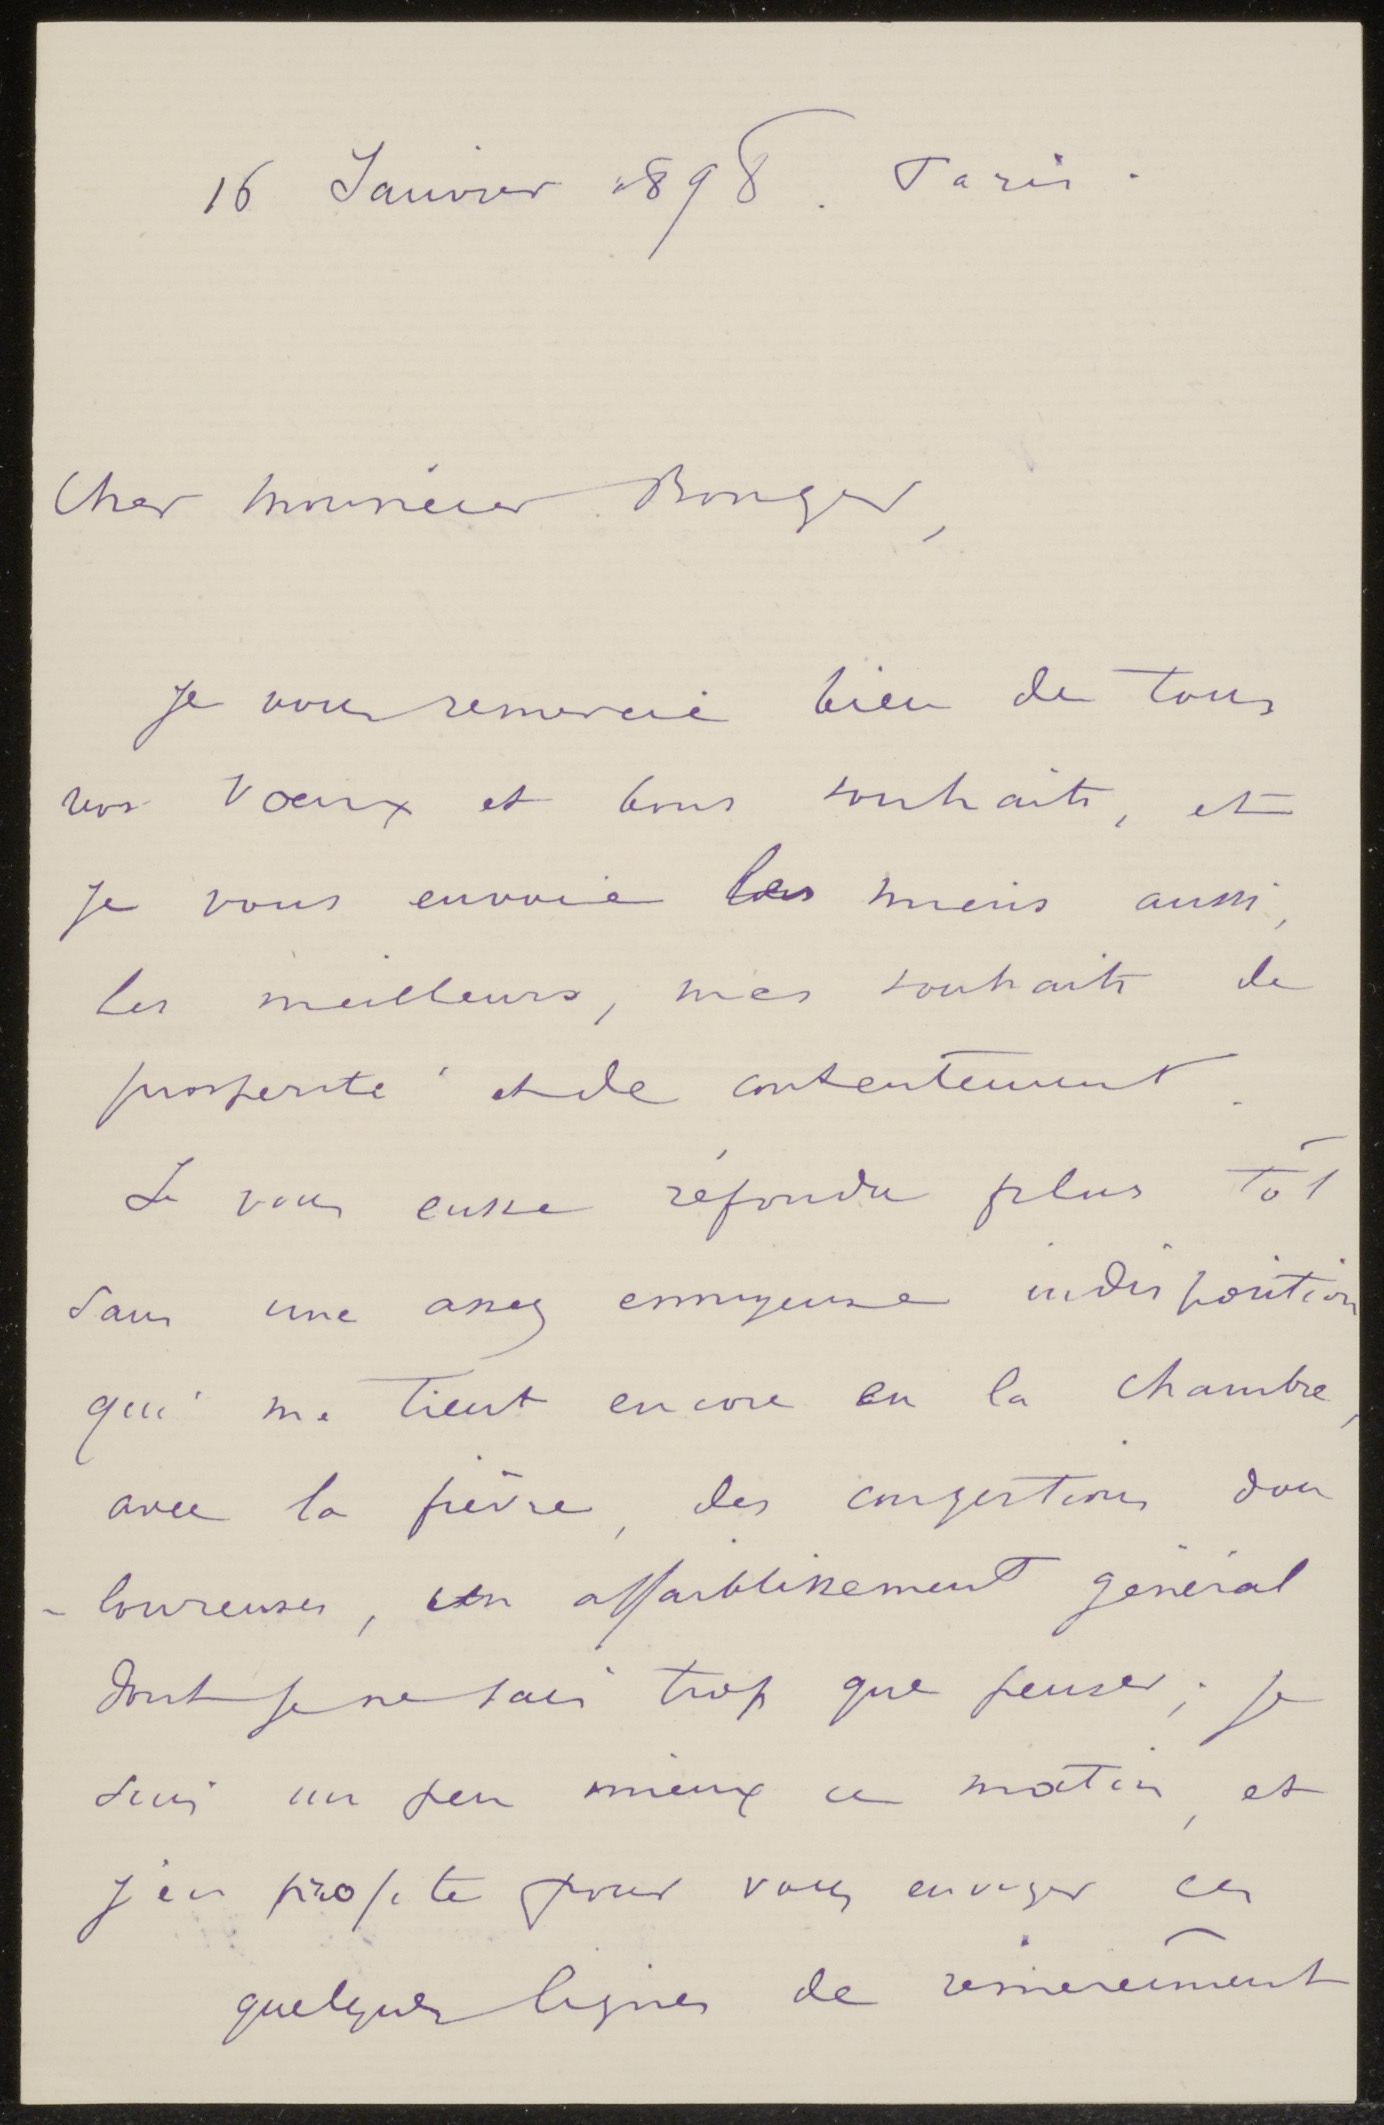 16 Janvier 1898. Paris.
Cher monsieur Bonger,
Je vous remercie bien de tous
vos vœux et bons souhaits, et
je vous envoie les miens aussi,
les meilleurs, mes souhaits de
prosperité et de contentement.
Je vous eusse répondu plus tôt
sans une assez ennuyeuse indisposition
qui me tient encore en la chambre,
avec la fièvre, des congestions dou
-loureuses, un affaiblissement général
dont je ne sais trop que penser ; je
suis un peu mieux ce matin, et
j'en profite pour vous envoyer ces
quelques lignes de remerciment